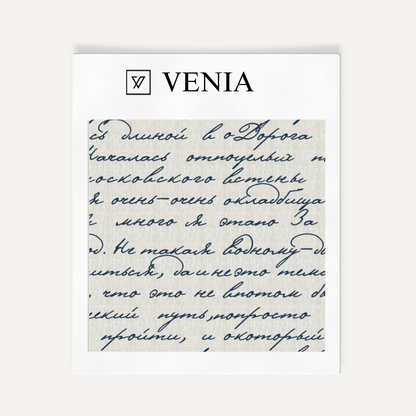 VENIA
сь длиной в о Дорога
Началась отпоцелых
московского встены
я очень-очень окладбища
много я этапо За
од. Не такая водному-
миться, да и не это тем
, что это не впотом
ский путь, попросто
пройти, и окоторый